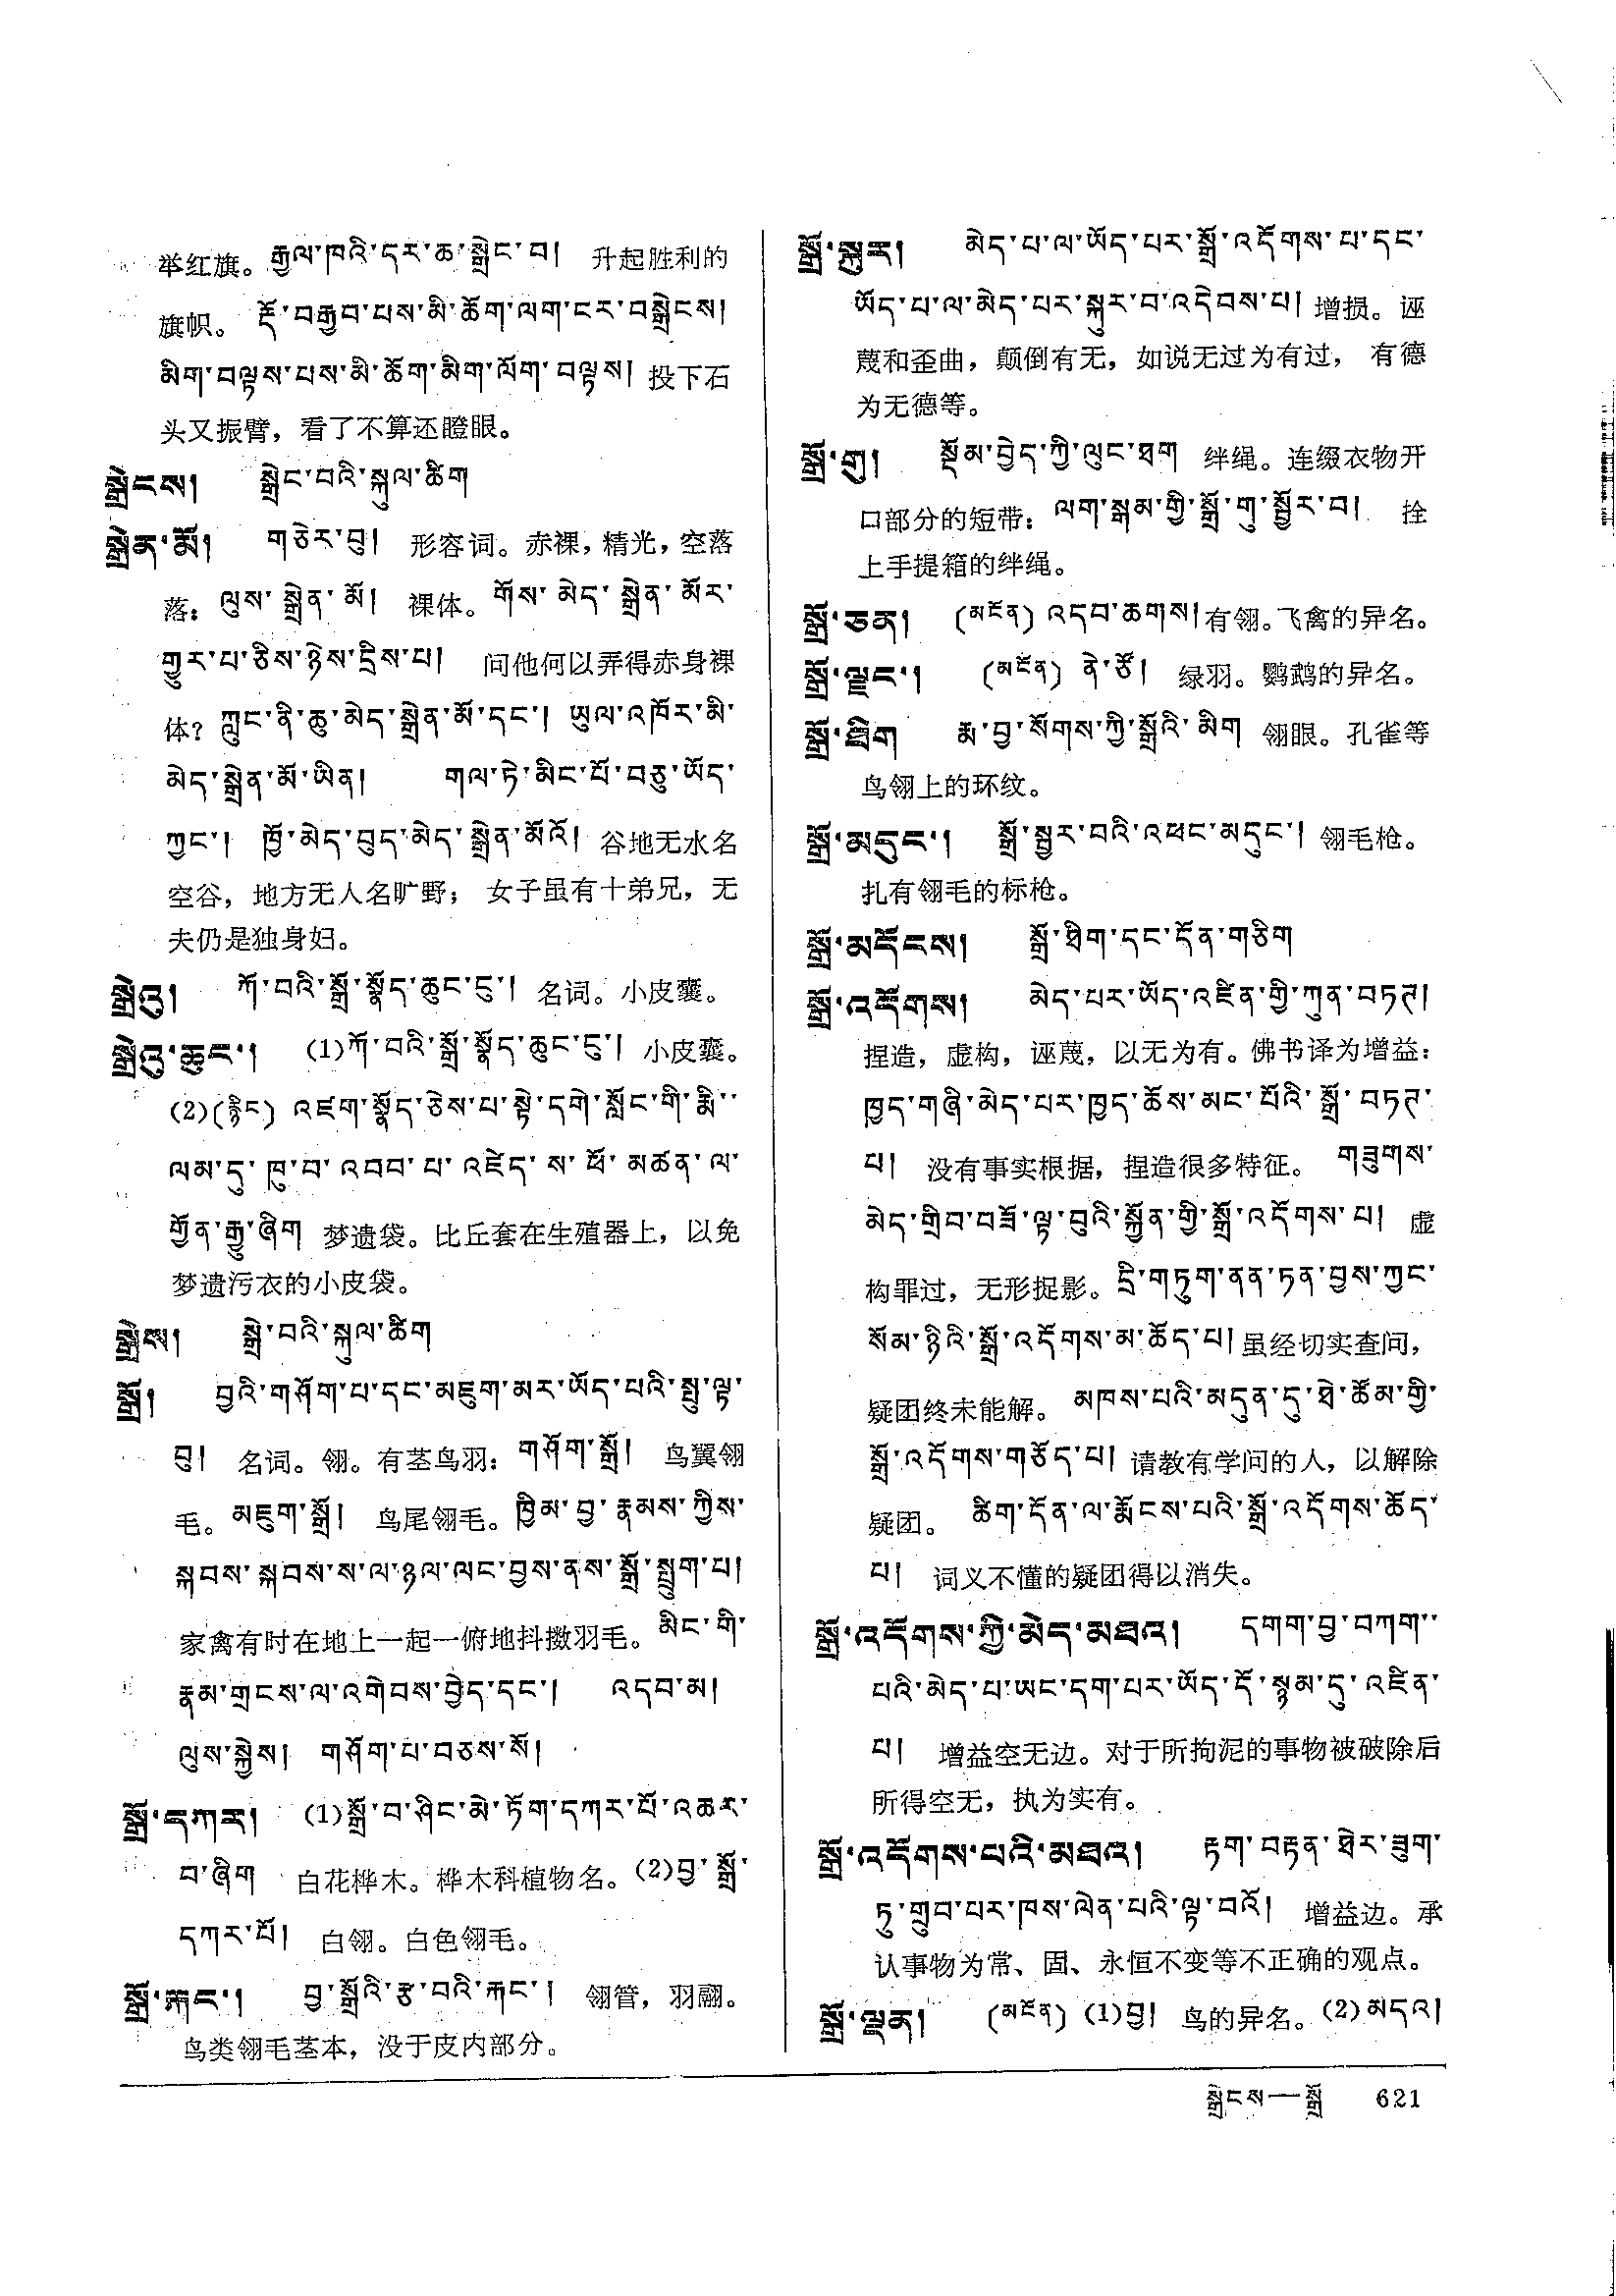 举红旗。རྒྱལ་ཁའི་དར་ཆ་སྒྲེང་བ། 升起胜利的
旗帜。 རྡོ་བརྒྱབ་པས་མི་ཆོག་ལག་ངར་བསྒྲེངས།
མིག་བལྟས་པས་མི་ཆོག་མིག་ལོག་བལྟས། 投下石
头又振臂，看了不算还瞪眼。
སྒྲེངས། སྒྲེང་བའི་སྐུལ་ཚིག
སྒྲེན་མོ། གཅེར་བུ། 形容词。赤裸，精光，空落
落：ལུས་སྒྲེན་མོ། 裸体。གོས་མེད་སྒྲེན་མོར་
གྱུར་པ་ཅིས་ཉེས་དྲིས་པ། 问他何以弄得赤身裸
体？ཀླུང་ནི་ཆུ་མེད་སྒྲེན་མོ་དང་། ཡུལ་འཁོར་མི་
མེད་སྒྲེན་མོ་ཡིན། གལ་ཏེ་མིང་པོ་བཅུ་ཡོད་
ཀྱང་། ཁྱོ་མེད་བུད་མེད་སྒྲེན་མོའོ། 谷地无水名
空谷，地方无人名旷野； 女子虽有十弟兄，无
夫仍是独身妇。
སྒྲེའུ། ཀོ་བའི་སྒྲོ་སྣོད་ཆུང་ངུ་། 名词。小皮囊。
སྒྲེའུ་ཆུང་། (1)ཀོ་བའི་སྒྲོ་སྣོད་ཆུང་ངུ་། 小皮囊。
(2)(རྙིང) འཛག་སྣོད་ཅེས་པ་སྟེ་དགེ་སློང་གི་རྨི་་
ལམ་དུ་ཁུ་བ་འབབ་པ་འཛེད་ས་ཕོ་མཚན་ལ་
གྱོན་རྒྱུ་ཞིག 梦遗袋。比丘套在生殖器上，以免
梦遗污衣的小皮袋。
སྒྲེས། སྒྲེ་བའི་སྐུལ་ཚིག
སྒྲོ། བྱའི་གཤོག་པ་དང་མཇུག་མར་ཡོད་པའི་སྤུ་ལྟ་
བུ། 名词。翎。有茎鸟羽：གཤོག་སྒྲོ། 鸟翼翎
毛。མཇུག་སྒྲོ། 鸟尾翎毛。ཁྱིམ་བྱ་རྣམས་ཀྱིས་
སྐབས་སྐབས་ས་ལ་ཉལ་ལང་བྱས་ནས་སྒྲོ་སྤྲུག་པ།
家禽有时在地上一起一俯地抖擞羽毛。མིང་གི་
རྣམ་གྲངས་ལ་འགེབས་བྱེད་དང་། འདབ་མ།
ལུས་སྐྱེས། གཤོག་པ་བཅས་སོ།
སྒྲོ་དཀར། (1)སྒྲོ་བ་ཤིང་མེ་ཏོག་དཀར་པོ་འཆར་
བ་ཞིག 白花桦木。桦木科植物名。(2)བྱ་སྒྲོ་
དཀར་པོ། 白翎。白色翎毛。
སྒྲོ་རྐང་། བྱ་སྒྲོའི་རྩ་བའི་རྐང་། 翎管，羽翮。
鸟类翎毛茎本，没于皮内部分。
སྒྲོ་སྐུར། མེད་པ་ལ་ཡོད་པར་སྒྲོ་འདོགས་པ་དང་
ཡོད་པ་ལ་མེད་པར་སྐུར་བ་འདེབས་པ། 增损。诬
蔑和歪曲，颠倒有无，如说无过为有过， 有德
为无德等。
སྒྲོ་གུ། སྡོམ་བྱེད་ཀྱི་ལུང་ཐག 绊绳。连缀衣物开
口部分的短带：ལག་སྒམ་གྱི་སྒྲོ་གུ་སྦྱོར་བ། 拴
上手提箱的绊绳。
སྒྲོ་ཅན། (མངོན) འདབ་ཆགས། 有翎。飞禽的异名。
སྒྲོ་ལྗང་། (མངོན) ནེ་ཙོ། 绿羽。鹦鹉的异名。
སྒྲོ་ཐིག རྨ་བྱ་སོགས་ཀྱི་སྒྲོའི་མིག 翎眼。孔雀等
鸟翎上的环纹。
སྒྲོ་མདུང་། སྒྲོ་སྦྱར་བའི་འཕང་མདུང་། 翎毛枪。
扎有翎毛的标枪。
སྒྲོ་མདོངས། སྒྲོ་ཐིག་དང་དོན་གཅིག
སྒྲོ་འདོགས། མེད་པར་ཡོད་འཛིན་གྱི་ཀུན་བཏཊ།
捏造，虚构，诬蔑，以无为有。佛书译为增益：
ཁྱད་གཞི་མེད་པར་ཁྱད་ཆོས་མང་པོའི་སྒྲོ་བཏཊ་
པ། 没有事实根据，捏造很多特征。 གཟུགས་
མེད་གྲིབ་བཟོ་ལྟ་བུའི་སྐྱོན་གྱི་སྒྲོ་འདོགས་པ། 虚
构罪过，无形捉影。དྲི་གཏུག་ནན་ཏན་བྱས་ཀྱང་
སོམ་ཉིའི་སྒྲོ་འདོགས་མ་ཆོད་པ། 虽经切实查问，
疑团终未能解。མཁས་པའི་མདུན་དུ་ཐེ་ཚོམ་གྱི་
སྒྲོ་འདོགས་གཅོད་པ། 请教有学问的人，以解除
疑团。 ཚིག་དོན་ལ་རྨོངས་པའི་སྒྲོ་འདོགས་ཆོད་
པ། 词义不懂的疑团得以消失。
སྒྲོ་འདོགས་ཀྱི་མེད་མཐའ། དགག་བྱ་བཀག་་
པའི་མེད་པ་ཡང་དག་པར་ཡོད་དོ་སྙམ་དུ་འཛིན་
པ། 增益空无边。对于所拘泥的事物被破除后
所得空无，执为实有。
སྒྲོ་འདོགས་པའི་མཐའ། རྟག་བརྟན་ཐེར་ཟུག་
ཏུ་གྲུབ་པར་ཁས་ལེན་པའི་ལྟ་བའོ། 增益边。承
认事物为常、固、永恒不变等不正确的观点。
སྒྲོ་ལྡན། (མངོན) (1)བྱ། 鸟的异名。(2)མདའ།
སྒྲེངས—སྒྲོ 621